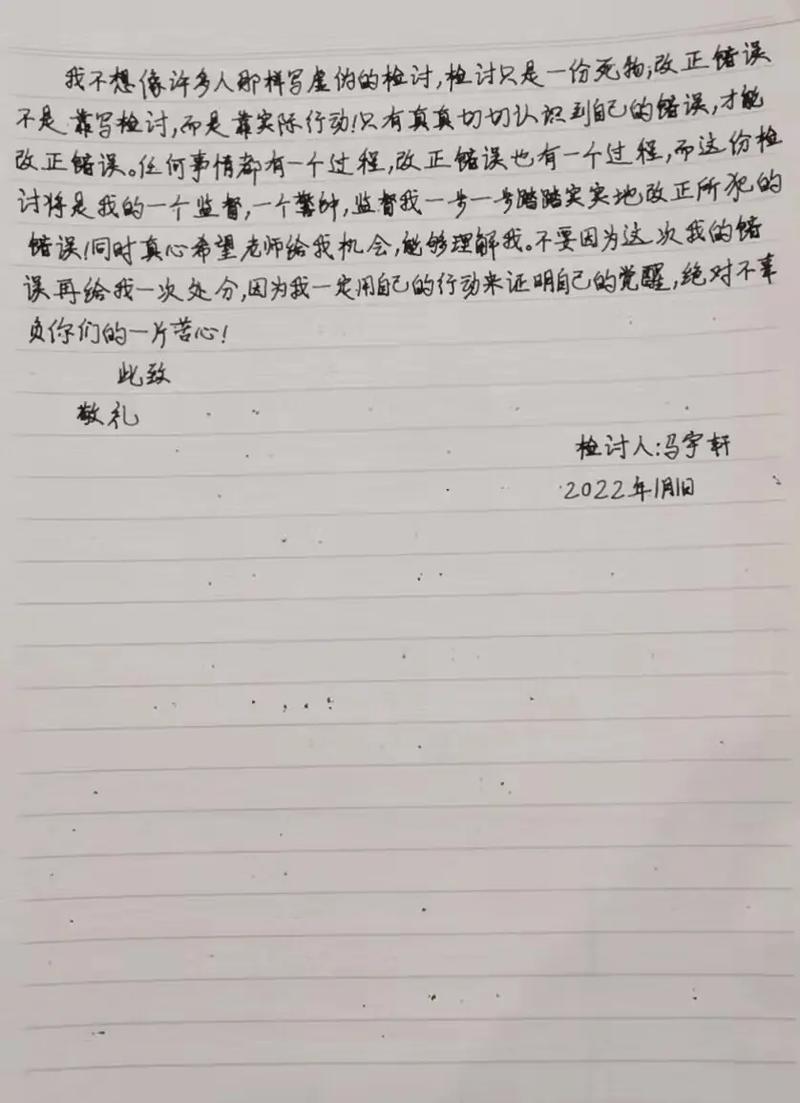 我不想像许多人那样写虚伪的检讨,检讨只是一份死物;改正错误
不是靠写检讨,而是靠实际行动!只有真真切切认识到自己的错误,才能
改正错误。任何事情都有一个过程,改正错误也有一个过程,而这份检
讨将是我的一个监督,一个警钟,监督我一步一步踏踏实实地改正所犯的
错误!同时真心希望老师给我机会,能够理解我。不要因为这次我的错
误再给我一次处分,因为我一定用自己的行动来证明自己的觉醒,绝对不辜
负你们的一片苦心!
此致
敬礼
检讨人:冯宇轩
2022年1月1日